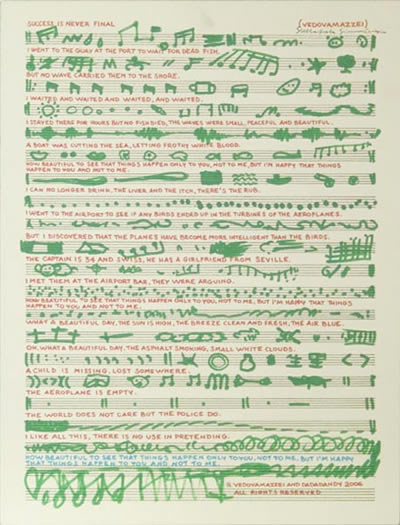 SUCCESS IS NEVER FINAL
(VEDOVAMAZZEI)
I WENT TO THE QUAY AT THE PORT TO WAIT FOR DEAD FISH.
BUT NO WAVE CARRIED THEM TO THE SHORE.
I WAITED AND WAITED AND WAITED, AND WAITED.
I STAYED THERE FOR HOURS BUT NO FISH DIED, THE WAVES WERE SMALL, PEACEFUL AND BEAUTIFUL.
A BOAT WAS CUTTING THE SEA, LETTING FROTHY WHITE BLOOD.
HOW BEAUTIFUL TO SEE THAT THINGS HAPPEN ONLY TO YOU, NOT TO ME, BUT I'M HAPPY THAT THINGS
HAPPEN TO YOU AND NOT TO ME.
I CAN NO LONGER DRINK, THE LIVER AND THE ITCH, THERE'S THE RUB.
I WENT TO THE AIRPORT TO SEE IF ANY BIRDS ENDED UP IN THE TURBINES OF THE AEROPLANES.
BUT I DISCOVERED THAT THE PLANES HAVE BECOME MORE INTELLIGENT THAN THE BIRDS.
THE CAPTAIN IS 34 AND SWISS, HE HAS A GIRLFRIEND FROM SEVILLE.
I MET THEM AT THE AIRPORT BAR, THEY WERE ARGUING.
HOW BEAUTIFUL TO SEE THAT THINGS HAPPEN ONLY TO YOU, NOT TO ME, BUT I'M HAPPY THAT THINGS
HAPPEN TO YOU AND NOT TO ME.
WHAT A BEAUTIFUL DAY, THE SUN IS HIGH, THE BREEZE CLEAN AND FRESH, THE AIR BLUE.
OH, WHAT A BEAUTIFUL DAY, THE ASPHALT SMOKING, SMALL WHITE CLOUDS.
A CHILD IS MISSING, LOST SOMEWHERE.
THE AEROPLANE IS EMPTY.
THE WORLD DOES NOT CARE BUT THE POLICE DO.
I LIKE ALL THIS, THERE IS NO USE IN PRETENDING.
HOW BEAUTIFUL TO SEE THAT THINGS HAPPEN ONLY TO YOU, NOT TO ME, BUT I'M HAPPY
THAT THINGS HAPPEN TO YOU AND NOT TO ME.
© VEDOVAMAZZEI AND DADADANDY 2006
ALL RIGHTS RESERVED